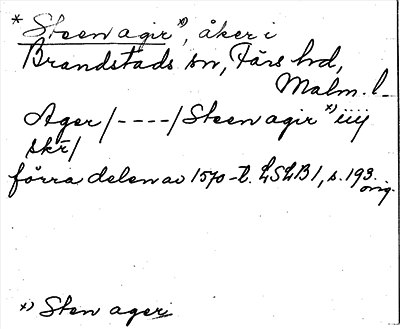 * Steen agir x), åker i
Brandstads sn, Färs hd,
Malm. l.
Ager /----/ Steen agir x) iiij
skr/
förra delen av 1570-t. LSLB 1, s. 193.
orig.
x) Sten ager